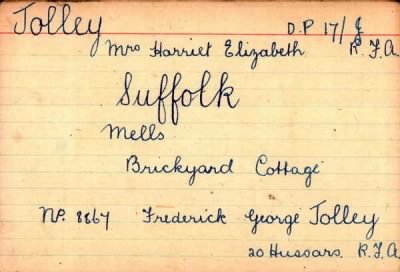 Tolley D.P 17/
Mrs Harriet Elizabeth R.F.A.
Suffolk
Mells
Brickyard Cottage
No. 8867 Frederick George Tolley
20 Hussars. R.F.A.